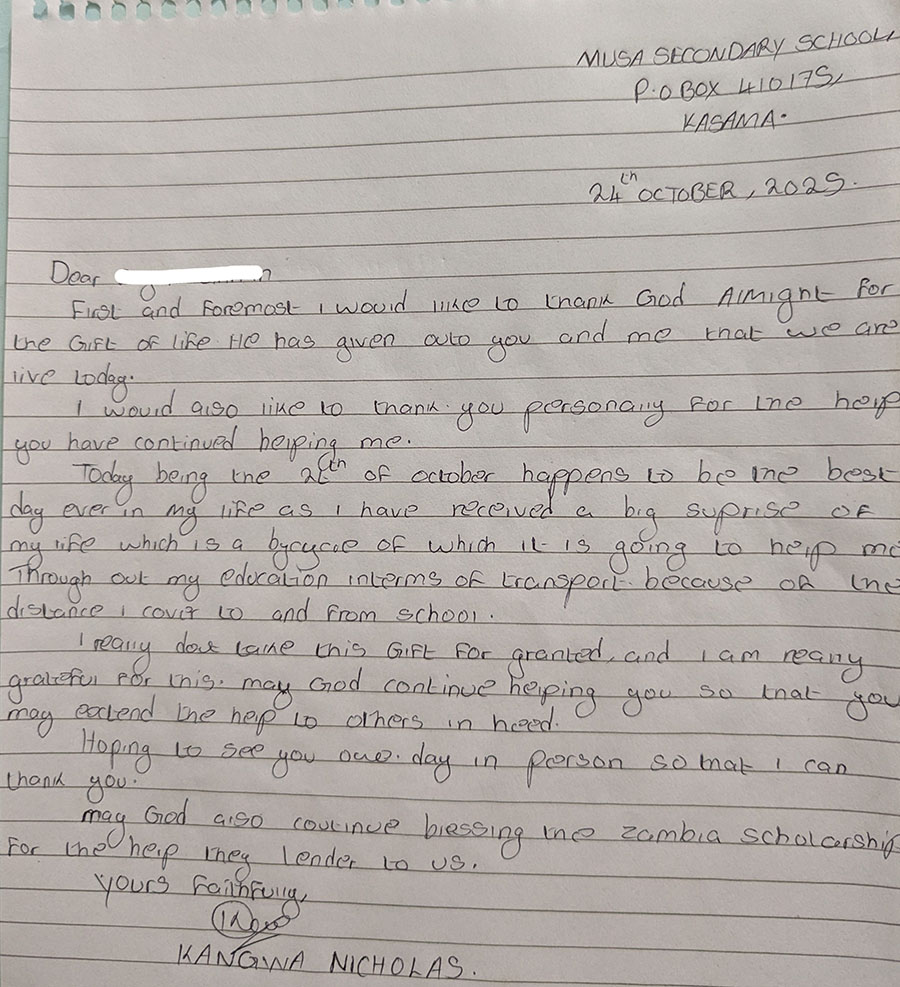 MUSA SECONDARY SCHOOL,
P.O BOX 410175,
KASAMA.
24th OCTOBER, 2025.
Dear
First and Foremost I would like to thank God Almight For
the Gift of life He has given outo you and me that we are
live today.
I would also like to thank you personally For the help
you have continued helping me.
Today being the 2 th of october happens to be the best
day ever in my life as I have received a big suprise of
my life which is a bycycle of which it is going to help me
Through out my education interms of transport because of the
distance I cover to and From school.
I really dont take this Gift For granted, and I am really
grateful For this. may God continue helping you so that you
may extend the help to others in need.
Hoping to see you one day in person so that I can
thank you.
may God also continue blessing the Zambia Scholarship
For the help they lender to us.
Yours Faithfully,
KANGWA NICHOLAS.